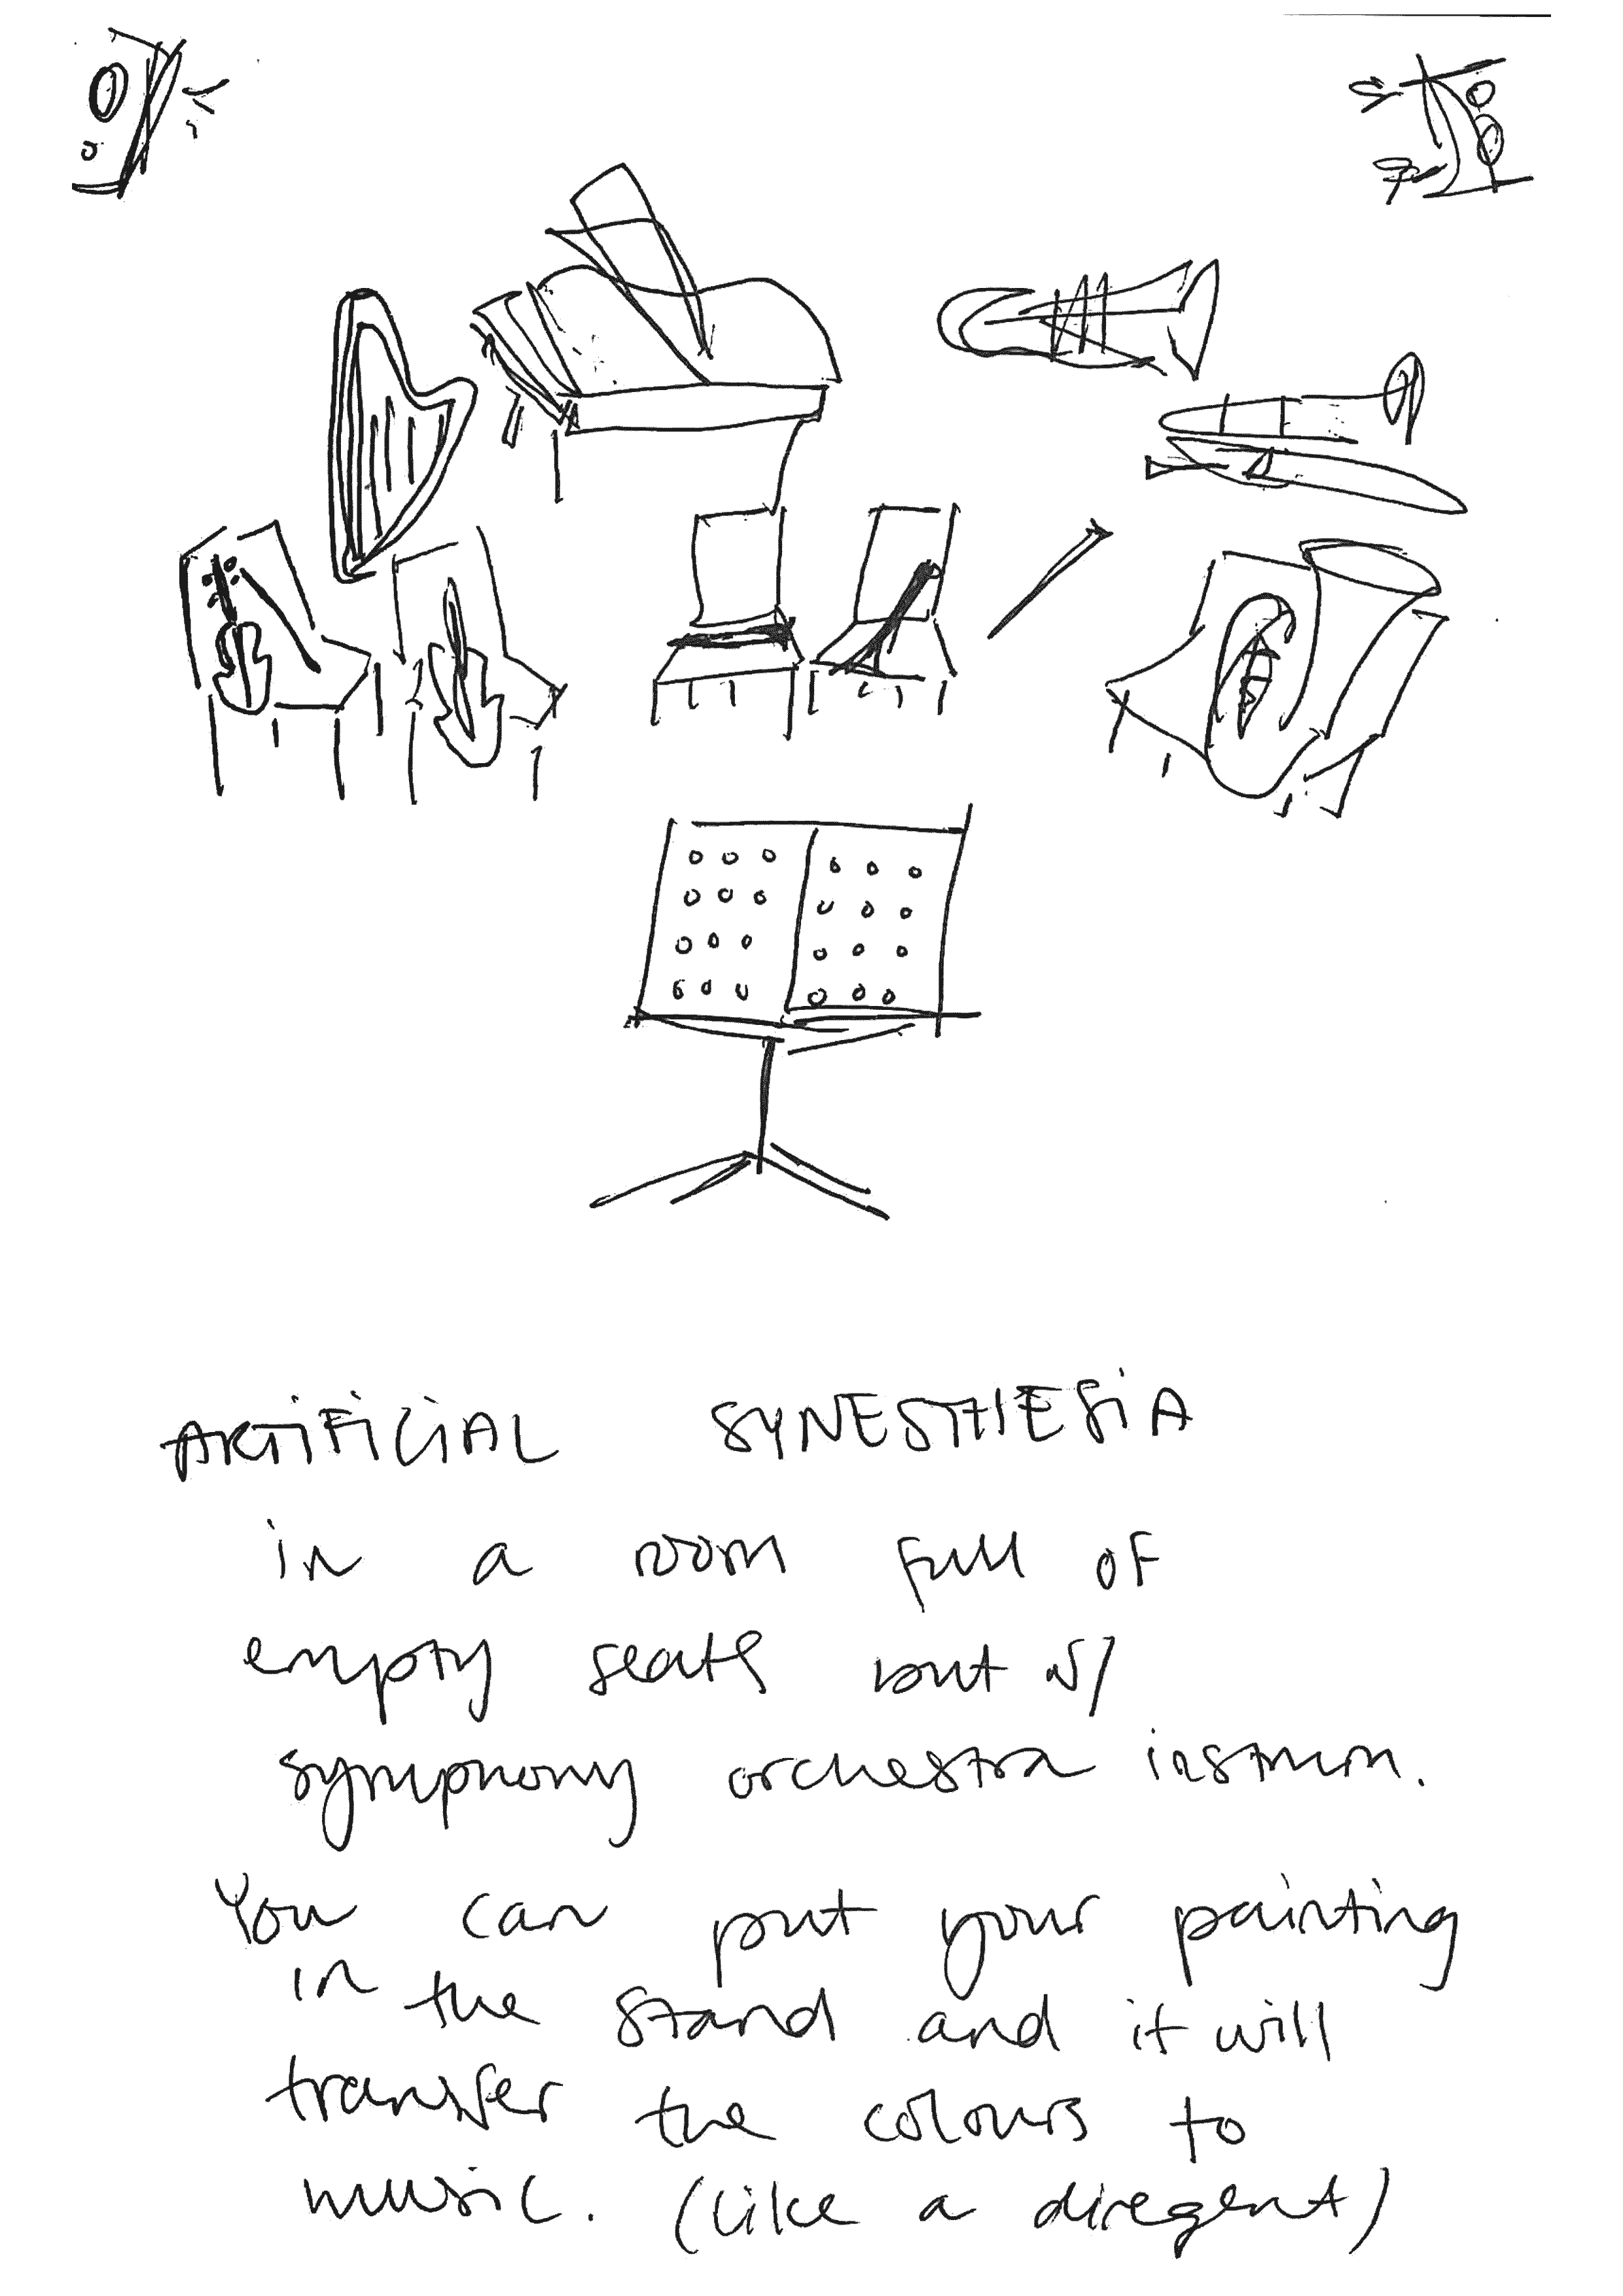 ARTIFICIAL SYNESTHESIA
in a room full of
empty seats but w/
symphony orchestra instrum.
You can put your painting
in the stand and it will
transfer the colours to
music. (like a diregent)